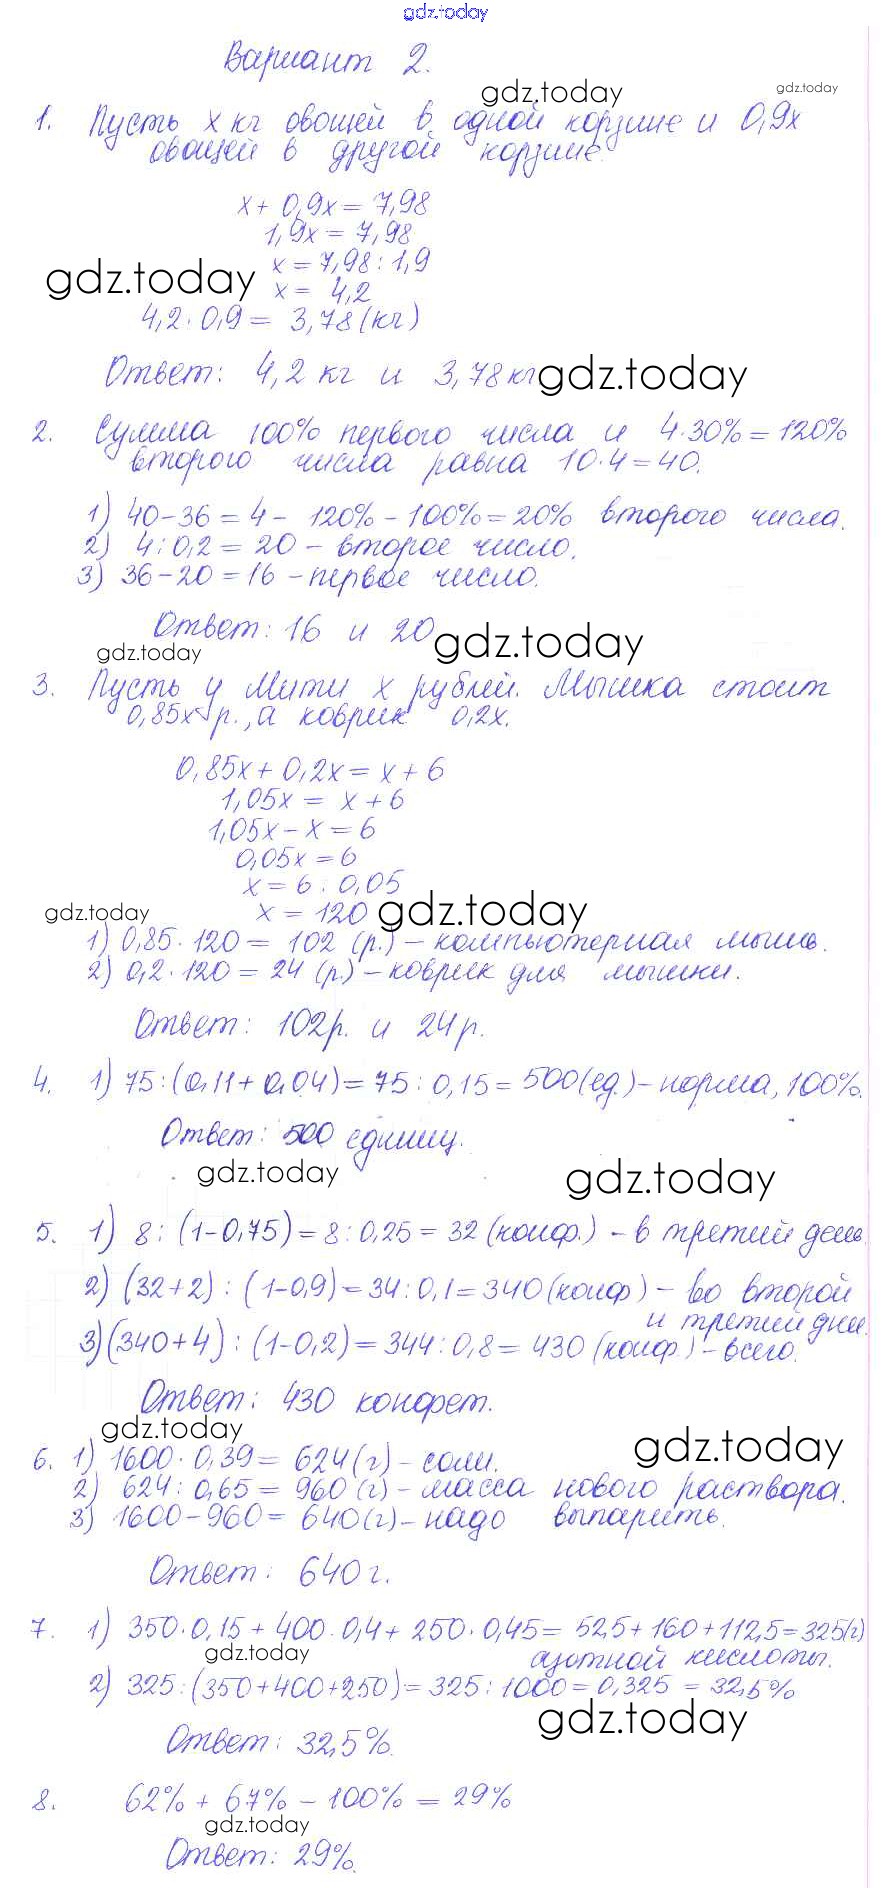 gdz.today
Вариант 2.
gdz.today gdz.today
1. Пусть x кг овощей в одной корзине и 0,9x
овощей в другой корзине.
x + 0,9x = 7,98
1,9x = 7,98
x = 7,98 : 1,9
gdz.today
x = 4,2
4,2 · 0,9 = 3,78 (кг)
Ответ: 4,2 кг и 3,78 кг
gdz.today
2. Сумма 100% первого числа и 4·30% = 120%
второго числа равна 10·4 = 40.
1) 40 – 36 = 4 – 120% – 100% = 20% второго числа.
2) 4 : 0,2 = 20 – второе число.
3) 36 – 20 = 16 – первое число.
Ответ: 16 и 20
gdz.today
gdz.today
3. Пусть у Мити x рублей. Мышка стоит
0,85x р., а коврик 0,2x.
0,85x + 0,2x = x + 6
1,05x = x + 6
1,05x – x = 6
0,05x = 6
x = 6 : 0,05
x = 120
gdz.today gdz.today
1) 0,85 · 120 = 102 (р.) – компьютерная мышь.
2) 0,2 · 120 = 24 (р.) – коврик для мышки.
Ответ: 102р. и 24р.
4. 1) 75 : (0,11 + 0,04) = 75 : 0,15 = 500 (ед.) – норма, 100%.
Ответ: 500 единиц.
gdz.today gdz.today
5. 1) 8 : (1 – 0,75) = 8 : 0,25 = 32 (конф.) – в третий день.
2) (32 + 2) : (1 – 0,9) = 34 : 0,1 = 340 (конф) – во второй
и третий дни.
3) (340 + 4) : (1 – 0,2) = 344 : 0,8 = 430 (конф.) – всего.
Ответ: 430 конфет.
gdz.today gdz.today
6. 1) 1600 · 0,39 = 624 (г) – соли.
2) 624 : 0,65 = 960 (г) – масса нового раствора.
3) 1600 – 960 = 640 (г) – надо выпарить.
Ответ: 640 г.
7. 1) 350 · 0,15 + 400 · 0,4 + 250 · 0,45 = 52,5 + 160 + 112,5 = 325 (г)
gdz.today
азотной кислоты.
2) 325 : (350 + 400 + 250) = 325 : 1000 = 0,325 = 32,5%
gdz.today
Ответ: 32,5%.
8. 62% + 67% – 100% = 29%
gdz.today
Ответ: 29%.